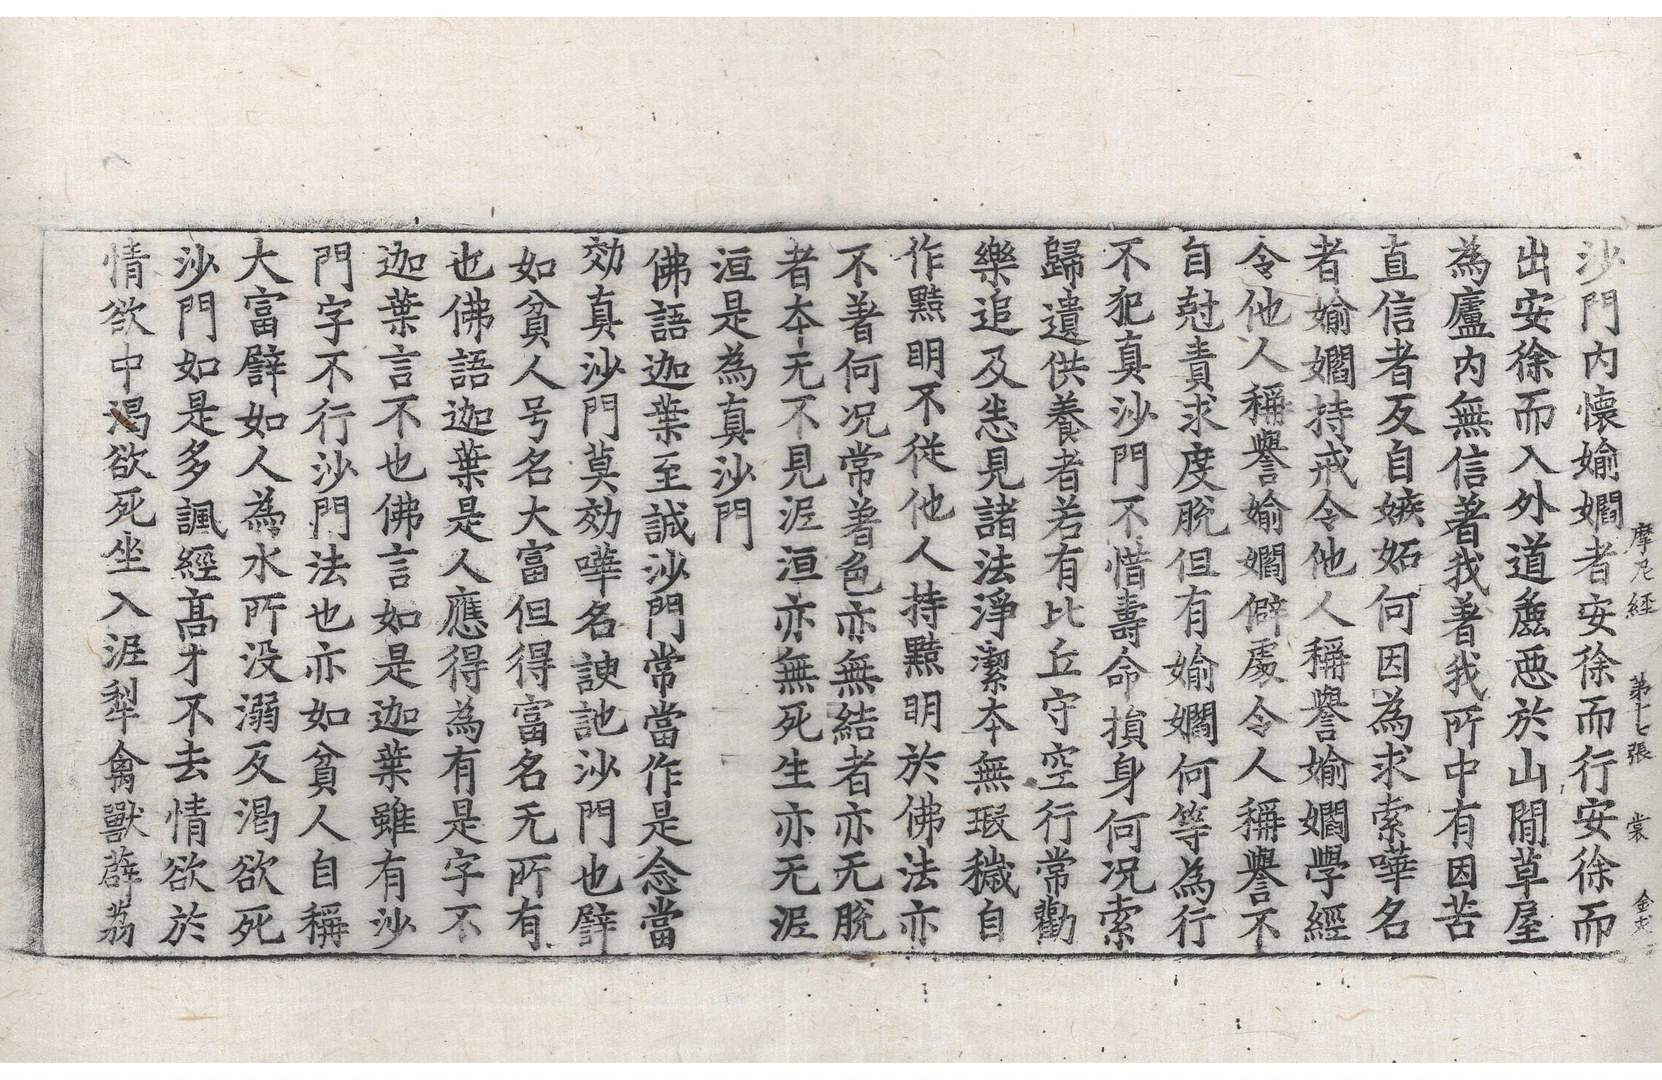 摩尼經　第十七張　裳
沙門內懷婾嫺者安徐而行安徐而
出安徐而入外道麁惡於山閒草屋
為廬內無信著我著我所中有因苦
直信者反自嫉妬何因為求索嘩名
者婾嫺持戒令他人稱譽婾嫺學經
令他人稱譽婾嫺僻處令人稱譽不
自尅責求度脫但有婾嫺何等為行
不犯真沙門不惜壽命損身何況索
歸遺供養者若有比丘守空行常勸
樂追及恙見諸法淨潔夲無瑕穢自
作黠明不從他人持黠明於佛法亦
不著何況常著色亦無結者亦无脫
者夲无不見泥洹亦無死生亦无泥
洹是為真沙門
佛語迦葉至誠沙門常當作是念當
効真沙門莫効嘩名諛訑沙門也譬
如貧人号名大富但得富名无所有
也佛語迦葉是人應得為有是字不
迦葉言不也佛言如是迦葉雖有沙
門字不行沙門法也亦如貧人自稱
大富譬如人為水所没溺反渴欲死
沙門如是多諷經高才不去情欲於
情欲中渴欲死坐入泥犁禽獸薜荔